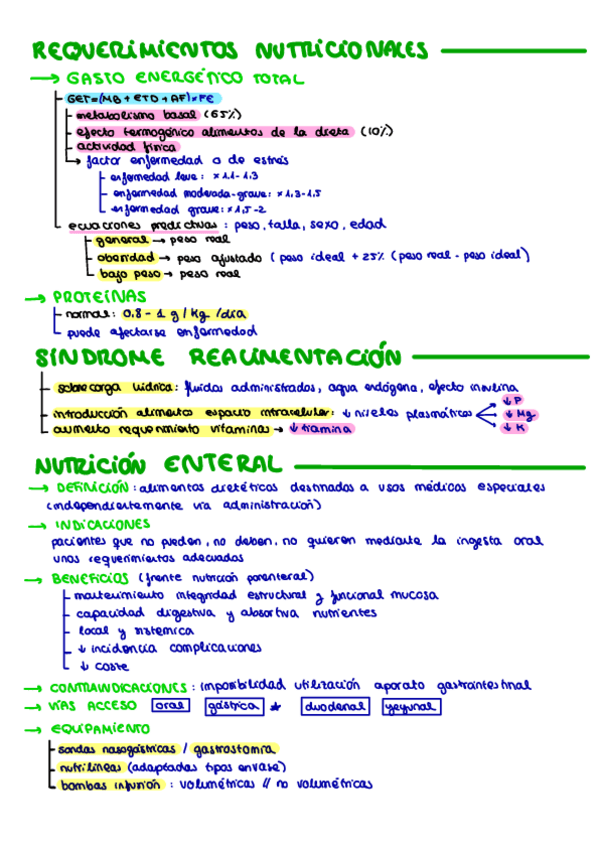 REQUERIMIENTOS NUTRICIONALES
→ GASTO ENERGÉTICO TOTAL
GET=(MB + ETD + AF)×FE
metabolismo basal (65%)
efecto termogénico alimentos de la dieta (10%)
actividad física
→ factor enfermedad o de estrés
enfermedad leve: × 1.1 - 1.3
enfermedad moderada-grave: × 1,3 - 1,5
enfermedad grave: × 1,5 - 2
ecuaciones predictivas: peso, talla, sexo, edad
general → peso real
obesidad → peso ajustado (peso ideal + 25% (peso real - peso ideal)
bajo peso → peso real
→ PROTEÍNAS
normal: 0.8 - 1 g / kg / día
puede afectarse enfermedad
SÍNDROME REALIMENTACIÓN
sobrecarga hídrica: fluidos administrados, agua endógena, efecto insulina
introducción alimentos espacio intracelular: ↓ niveles plasmáticos ↓ P ↓ Mg ↓ K
aumento requerimiento vitaminas → ↓ tiamina
NUTRICIÓN ENTERAL
→ DEFINICIÓN: alimentos dietéticos destinados a usos médicos especiales
(independientemente vía administración)
→ INDICACIONES
pacientes que no pueden, no deben, no quieren mediante la ingesta oral
unos requerimientos adecuados
→ BENEFICIOS (frente nutrición parenteral)
mantenimiento integridad estructural y funcional mucosa
capacidad digestiva y absortiva nutrientes
local y sistémica
↓ incidencia complicaciones
↓ coste
→ CONTRAINDICACIONES: imposibilidad utilización aparato gastrointestinal
→ VÍAS ACCESO oral gástrica * duodenal yeyunal
→ EQUIPAMIENTO
sondas nasogástricas / gastrostomía
nutrilíneas (adaptadas tipos envase)
bombas infusión: volumétricas // no volumétricas